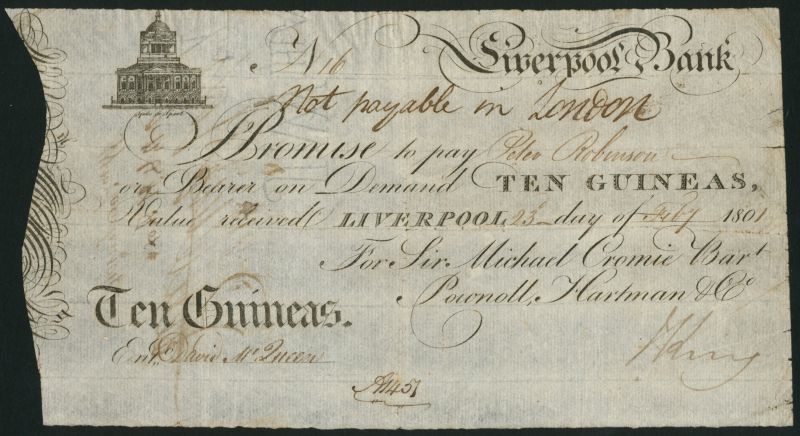 No 16
Liverpool Bank
Not payable in London
I Promise to pay Peter Robinson
or Bearer on Demand TEN GUINEAS,
Value received LIVERPOOL 23 day of Feby 1801
For Sir Michael Cromie Bart
Pownoll, Hartman & Co
Ten Guineas.
Entd David McQueen
J King
A1451